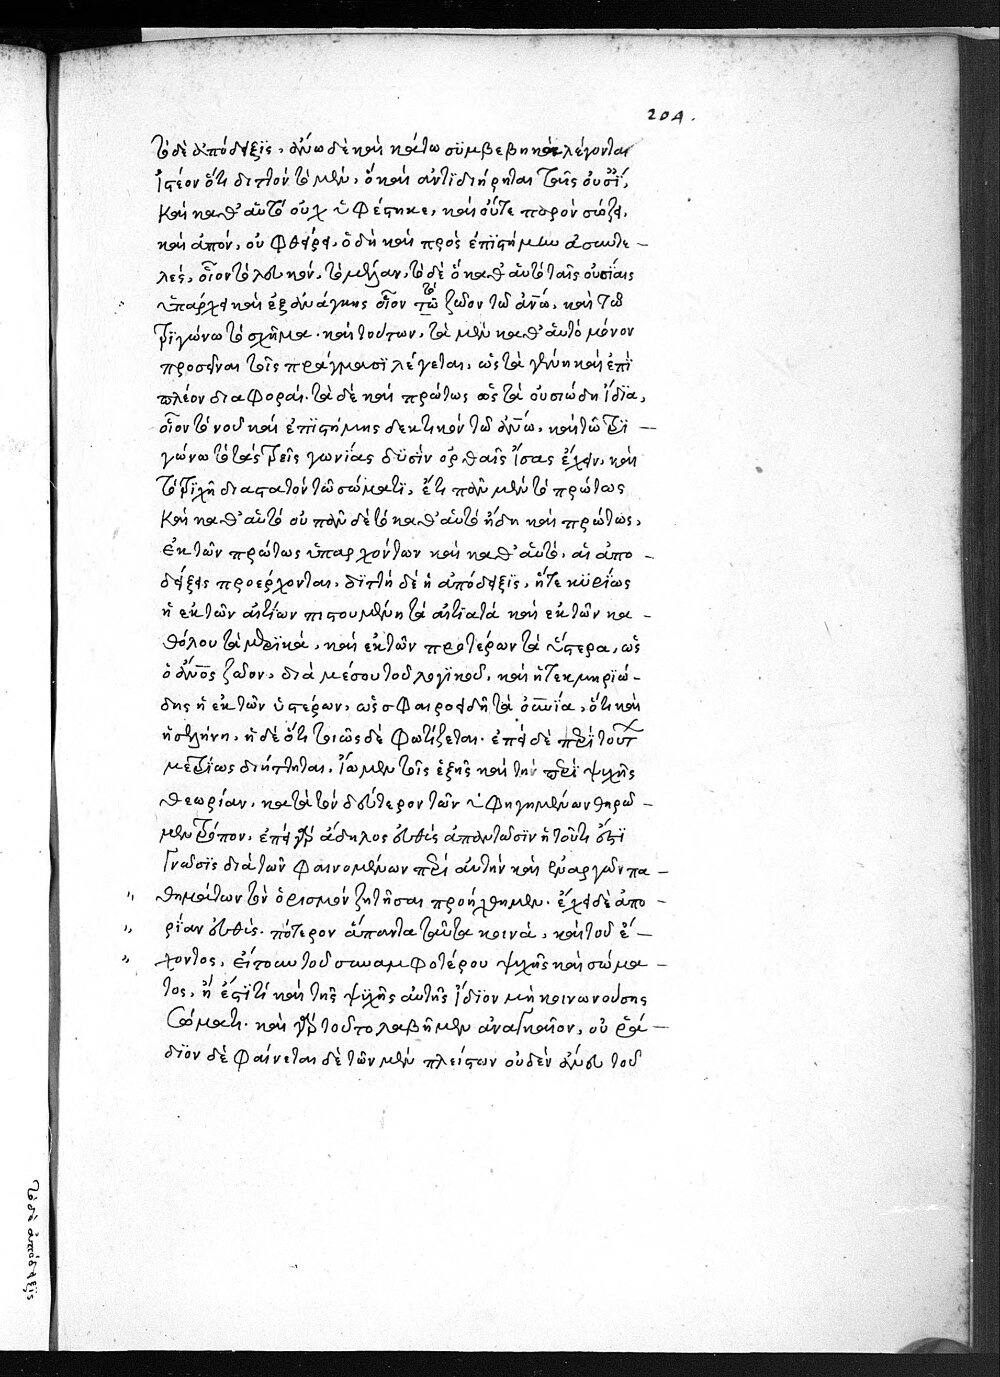 204.
τὸ δὲ ἀπόδειξϊς, ἄνω δὲ καὶ κάτω σϋμβεβηκὸς λέγονται
ἰστέον ὅτι διττὸν τὸ μὲν, ὃ καὶ ἀντϊδιήρηται ταῖς οὐσί,
καὶ καθ' αὑτό οὐχ ὑφέστηκε, καὶ οὔτε παρὸν σώζει,
καὶ ἀπὸν, οὐ φθείρει, ὃ δὴ καὶ πρὸς ἐπϊστήμην ἀσυντε-
λές, οἷον τὸ λευκὸν, τὸ μέλαν, τὸ δὲ ὃ καθ' αὑτὸ ταῖς οὐσίαις
ὑπάρχει καὶ ἐξ ἀνάγκης οἷον τῶ ζῶον τῶ ἀνω, καὶ τῶ
τρϊγώνω τὸ σχῆμα. καὶ τούτων, τὰ μὲν καθ' αὑτὸ μόνον
προσεῖναι τοῖς πράγμασϊ λέγεται, ὡς τὰ γένη καὶ ἐπὶ
πλέον διαφοραί. τὰ δὲ καὶ πρώτως ὡς τὰ οὐσιώδη ἴδϊα,
οἷον τὸ νοῦ καὶ ἐπϊστήμης δεκτικὸν τῶ ἀνω, καὶ τῶ τρϊ-
γώνω τὸ τὰς τρεῖς γωνίας δϋσὶν ὀρθαῖς ἴσας ἔχειν, καὶ
τὸ τρϊχῆ διαστατὸν τῶ σώματϊ, ἔτι πᾶν μὲν τὸ πρώτως
καὶ καθ' αὑτό οὐ πᾶν δὲ τὸ καθ' αὑτὸ ἤδη καὶ πρώτως,
ἐκ τῶν πρώτως ὑπαρχόντων καὶ καθ' αὑτὸ, αἱ ἀπο-
δείξεις προέρχονται, διττὴ δὲ ἡ ἀπόδειξϊς, ἥτε κϋρίως
ἡ ἐκ τῶν αἰτίων πιστουμένη τὰ αἰτϊατὰ καὶ ἐκ τῶν κα-
θόλου τὰ μερϊκὰ, καὶ ἐκ τῶν προτέρων τὰ ὕστερα, ὡς
ὁ ἄνος ζῶον, διὰ μέσου τοῦ λογϊκοῦ, καὶ ἡ τεκμηριώ-
δης ἡ ἐκ τῶν ὑστέρων, ὡς σφαιροειδῆ τὰ οὐνϊα, ὅτι καὶ
ἡ σελήνη, ἡ δὲ ὅτι τοιῶς δὲ φωτίζεται. ἐπεὶ δὲ περὶ τούτ
μετρίως διήττηται, ἴωμεν τοῖς ἑξῆς καὶ τὴν περὶ ψυχῆς
θεωρίαν, κατὰ τὸν δεύτερον τῶν ὑφηγημένων θηρῶ-
μεν τρόπον, ἐπεὶ γὰρ ἄδηλος εὐθὺς ἀπαντῶσϊν ἡ τοῦ τί ἐστϊ
γνῶσϊς διὰ τῶν φαινομένων περὶ αὐτὴν καὶ ἐναργῶν πα-
θημάτων τὸν ὁρισμὸν ζητῆσαι προήχθημεν. ἔχει δὲ ἀπο-
ρίαν εὐθὺς. πότερον ἅπαντα ταῦτα κοινὰ, καὶ τοῦ ἔ-
χοντος, εἴτουν τοῦ συναμφοτέρου ψυχῆς καὶ σώμα-
τος, ἢ ἔστϊ τὶ καὶ τῆς ψϋχῆς αὐτῆς ἴδϊον μὴ κοινωνούσης
σώματι. καὶ γὰρ τοῦτο λαβῆ μὲν ἀναγκαῖον, οὐ ῥά-
δϊον δὲ φαίνεται δὲ τῶν μὲν πλείστων οὐδὲν ἄνευ τοῦ
τὸ δὲ ἀπόδειξϊς